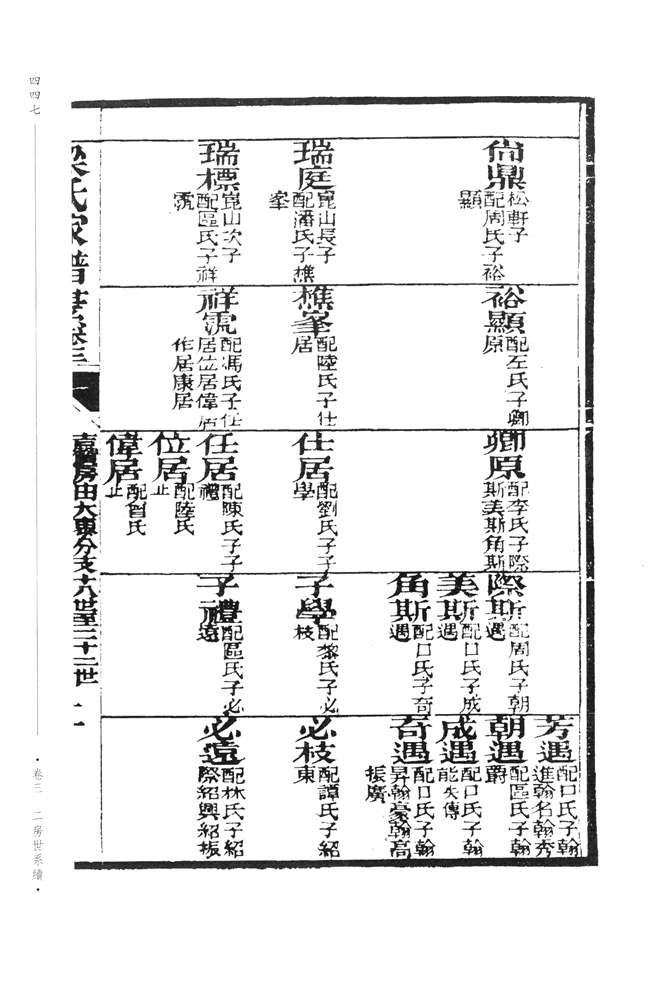 尙鼎
松軒子
配周氏子裕
顯
瑞庭
崑山長子
配潘氏子樵
峯
瑞標
崑山次子
配區氏子祥
霓
裕顯
配左氏子卿
原
樵峯
配陸氏子仕
居
祥霓
配馮氏子任
居位居偉居
作居康居
卿原
配李氏子際
斯美斯角斯
仕居
配劉氏子子
學
任居
配陳氏子子
禮
位居
配陸氏
止
偉居
止
際斯
配周氏子朝
遇
美斯
配口氏子成
遇
角斯
配口氏子奇
遇
子學
配黎氏子必
枝
子禮
配區氏子必
遠
芳遇
配口氏子翰
進翰名翰秀
朝遇
配區氏子翰
爵
成遇
配口氏子翰
能失傳
奇遇
配口氏子翰
昇翰豪翰高
振廣
必枝
配譚氏子紹
東
必遠
配林氏子紹
際紹興紹振
梁氏家譜
房由大車分支六世至二十二世
四四七
卷三 二房世系續